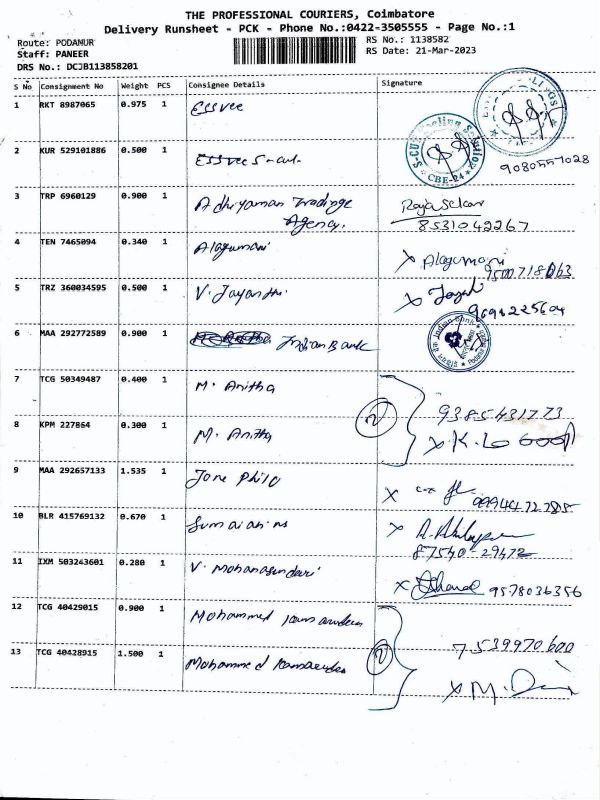 THE PROFESSIONAL COURIERS, Coimbatore
Delivery Runsheet - PCK - Phone No.:0422-3505555 - Page No.:1
Route: PODANUR
RS No.: 1138582
Staff: PANEER
RS Date: 21-Mar-2023
DRS No.: DCJB113858201
S No Consignment No Weight PCS Consignee Details Signature
1 RKT 8987065 0.975 1 Essvee
2 KUR 529101886 0.500 1 Essvee S-cut
S-CUT
CBE-24
9080557028
3 TRP 6960129 0.900 1 Adhiyaman Tradinge Agency. Raja Sekar
8531042267
4 TEN 7465094 0.340 1 Alagumani Alagumani
9500718063
5 TRZ 360034595 0.500 1 V. Jayanthi
6 MAA 292772589 0.900 1 Indian Bank
Indian Bank
7 TCG 50349487 0.400 1 M. Anitha
9385431773
8 KPM 227864 0.300 1 M. Anitha
2
9 MAA 292657133 1.535 1
10 BLR 415769132 0.670 1
87540-29472
11 IXM 503243601 0.280 1 V. Mohanasundari
9578036356
12 TCG 40429015 0.900 1 Mohammed
7539970600
13 TCG 40428915 1.500 1 Mohammed
2